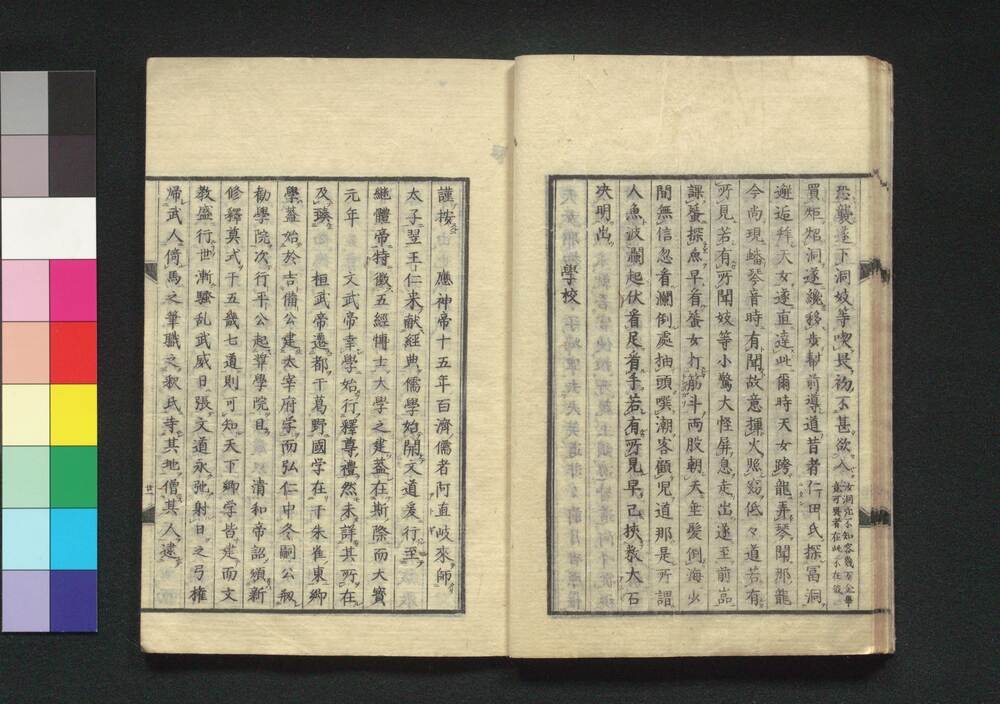 恐襲遂下洞妓等喫畏初不甚欲入
買炬炤洞遂纔移前導道昔者仁田氏探冨洞
邂逅拜天女遂直達此爾時天女跨龍弄琴聞那龍
今尚現蟠琴音時有聞故意揮火照窈低々道若有
所見若有所聞妓等小驚大怪屏息走出遂至前嵓
課蜑探魚早看蜑女打筋斗両股朝天垂髪倒海少
間無信忽看瀾倒處抽頭噀潮客顧児道那是所謂
人魚波瀾起伏看足看手若有所見早已挾数大石
决明出
學校
謹按 應神帝十五年百濟儒者阿直岐來師
太子翌王仁来献經典儒學始開文道爰行至
継體帝特徴五經博士大學之建蓋在斯際而大寳
元年 文武帝幸學始行釋尊禮然未詳其所在
及 桓武帝遷都于葛野國学在于朱雀東郷
學蓋始於吉備公建太宰府学而弘仁中冬嗣公剏
勧學院次行平公起奨學院且 清和帝詔頒新
修釋奠式于五畿七道則可知天下郷学皆建而文
教盛行世漸騒乱武威日張文道永弛射日之弓権
帰武人倚馬之筆職之釈氏寺其地僧其人逮